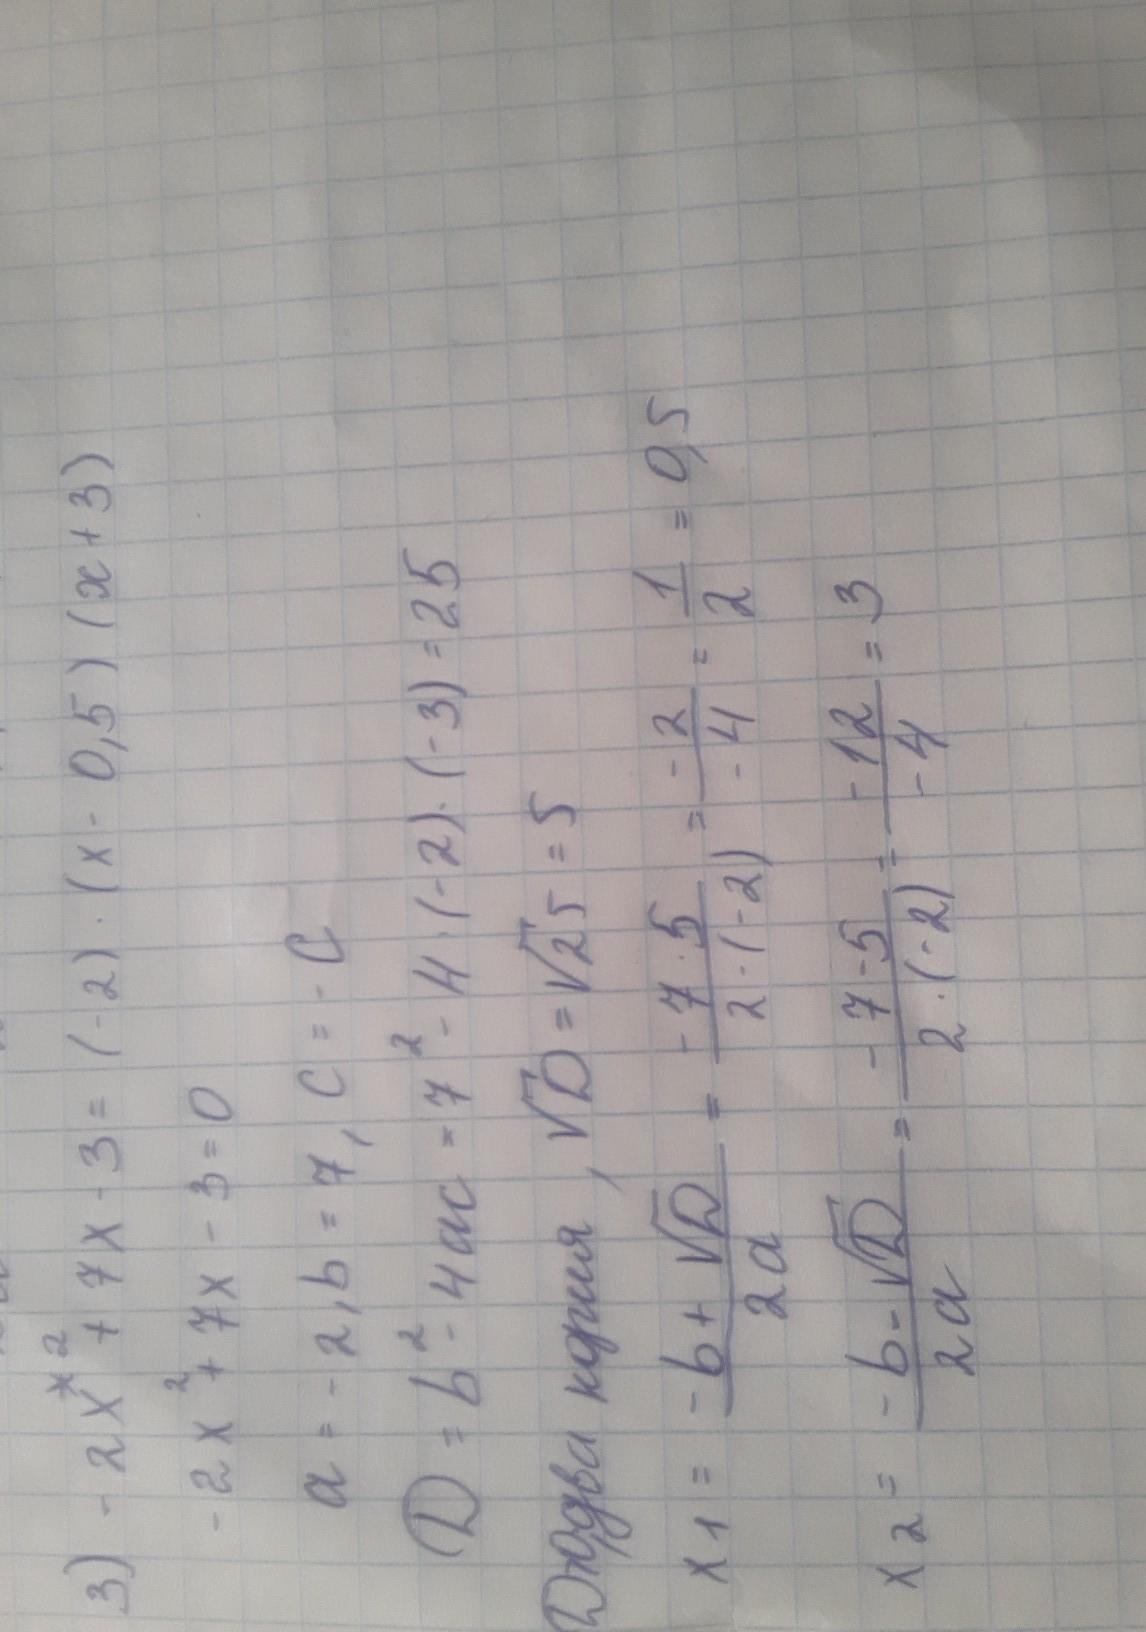 3) - 2x² + 7x - 3 = (-2) · (x - 0,5) (x + 3)
- 2x² + 7x - 3 = 0
a = - 2, b = 7, c = - c
D = b² - 4ac = 7² - 4 · (-2) · (-3) = 25
D>0, два корня, √D = √25 = 5
x1 = (- b + √D)/(2a) = (- 7 · 5)/(2 · (-2)) = (- 2)/(- 4) = 1/2 = 0,5
x2 = (- b - √D)/(2a) = (- 7 - 5)/(2 · (-2)) = (- 12)/(- 4) = 3